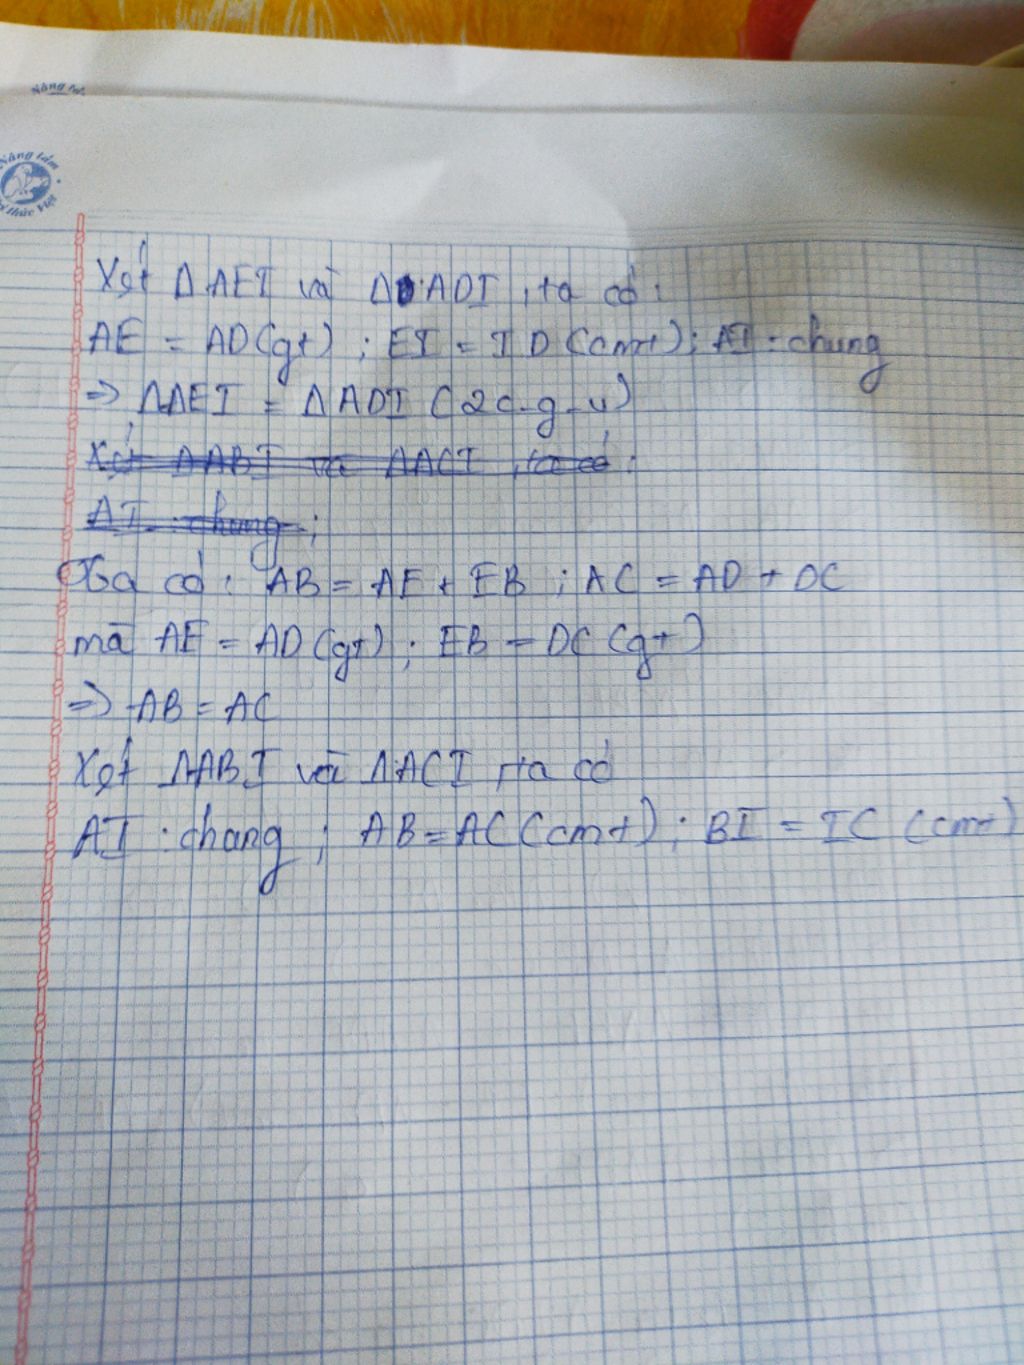 Nâng tầ
Nâng tầm
tri thức Việt
Xét ΔAEI và ΔADI, ta có:
AE = AD (gt) ; EI = ID (cmt) ; AI : chung
=> ΔAEI = ΔADI (2c-g-v)
Xét ΔABI và ΔACI, ta có:
AI : chung ;
Ta có: AB = AE + EB ; AC = AD + DC
mà AE = AD (gt) ; EB = DC (gt)
=> AB = AC
Xét ΔABI và ΔACI, ta có
AI : chang ; AB = AC (cmt) ; BI = IC (cmt)